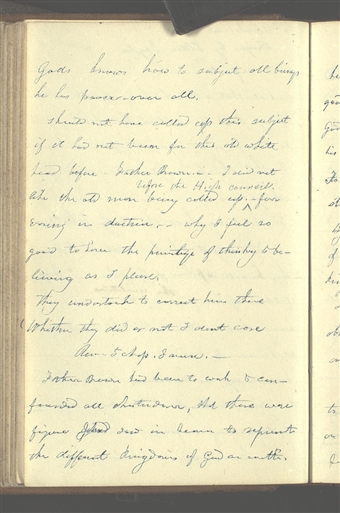 Gods knows how to subject all beings
he his power—over all.
should not have called up this subject
if it had not been for this old white
head before - Father Brown - I did not
before the High council.
like the old man being called up for
erring in doctrine, - why I feel so
good to have the privilege of thinking & be-
lieving as I please.
They undertook to correct him there
Whether they did or not I dont care
Rev - 5 chap. 8 verse. -
Father Brown had been to work & con-
founded all christendom, that these were
figures John saw in heaven to represent
the different kingdoms of God on earth.